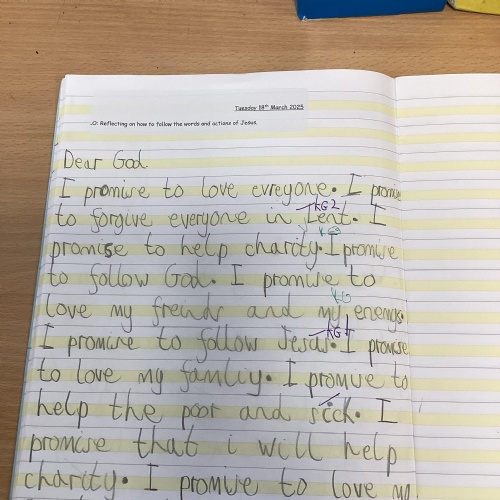 Tuesday 18th March 2025
.O: Reflecting on how to follow the words and actions of Jesus.
Dear God
I promise to love evreyone. I promise
to forgive everyone in Lent. I
promise to help charity. I promise
to follow God. I promise to
love my freinds and my enemys.
I promise to follow Jesus. I promise
to love my famliy. I promise to
help the poor and sick. I
promise that i will help
charity. I promise to love my